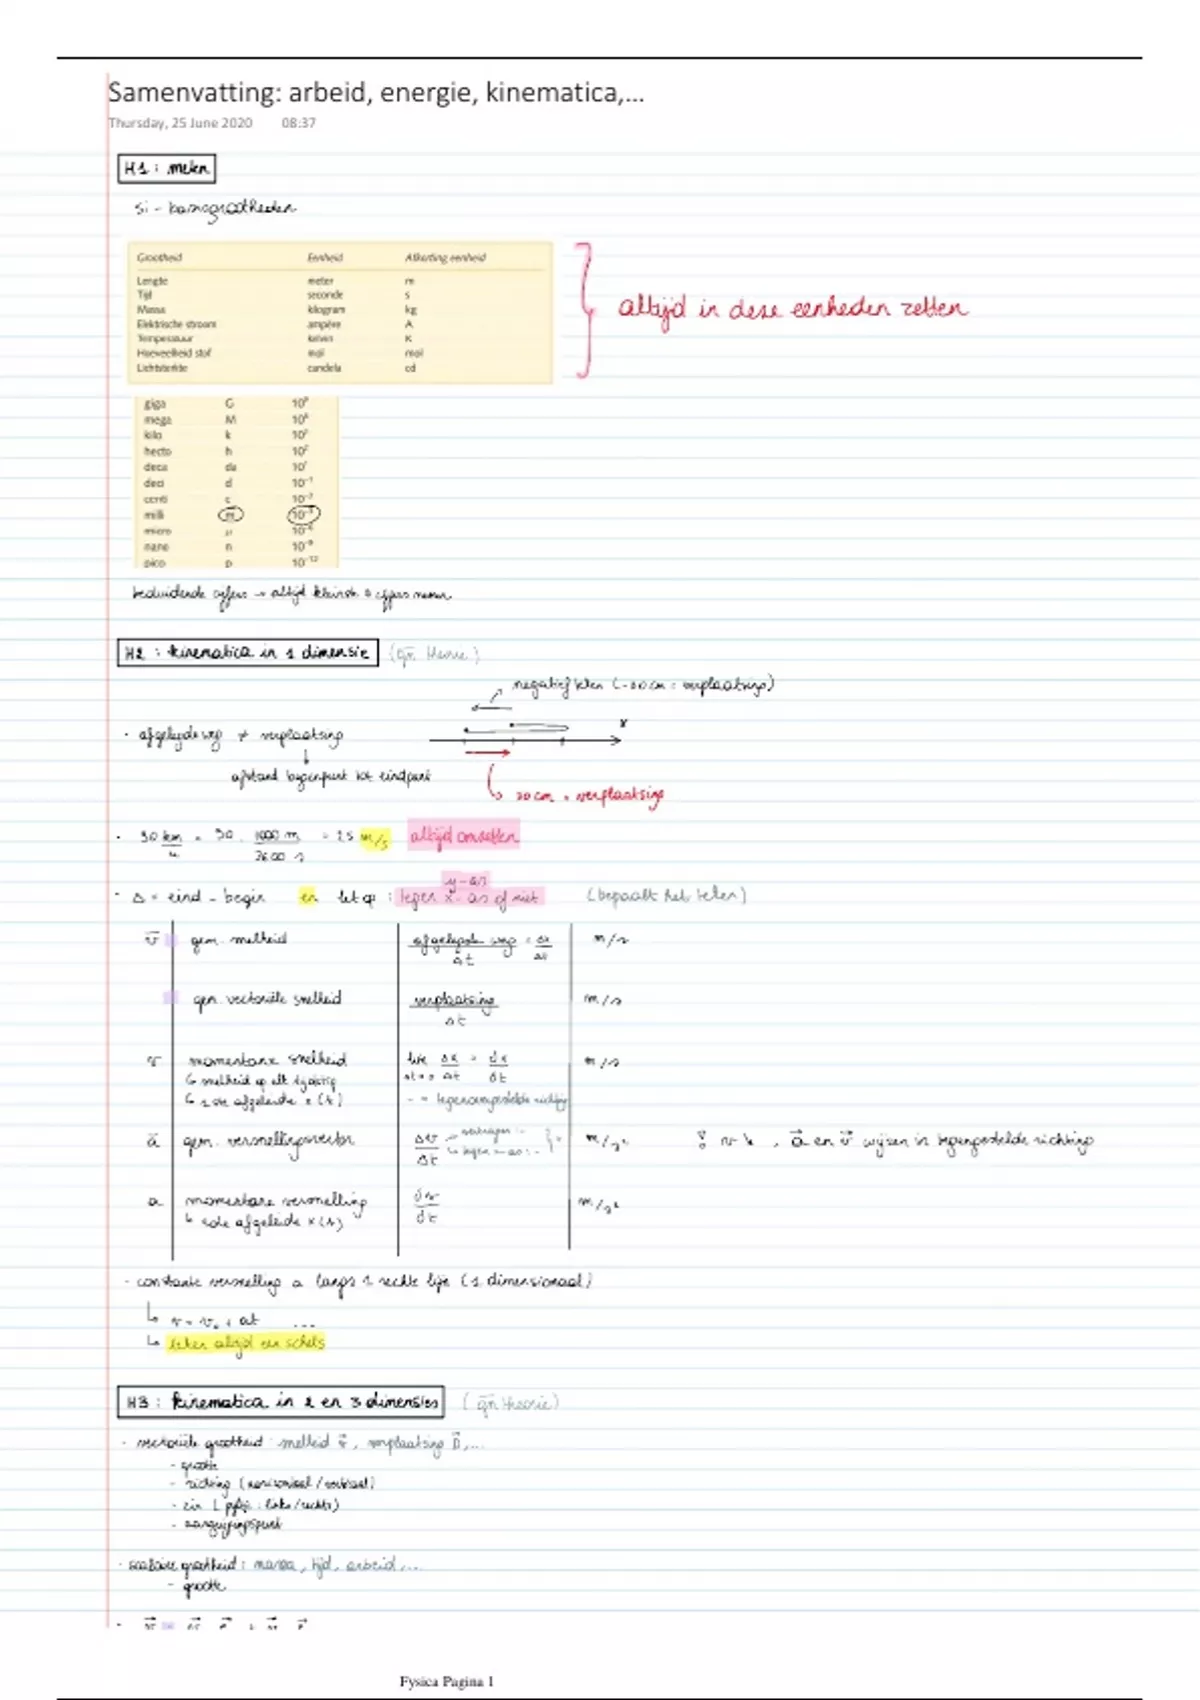 Samenvatting: arbeid, energie, kinematica,...
Thursday, 25 June 2020 08:37
H1 : meten
Si - basisgrootheden
Grootheid Eenheid Afkorting eenheid
Lengte meter m
Tijd seconde s
Massa kilogram kg
Elektrische stroom ampère A
Temperatuur kelvin K
Hoeveelheid stof mol mol
Lichtsterkte candela cd
altijd in deze eenheden zetten
giga G 10⁹
mega M 10⁶
kilo k 10³
hecto h 10²
deca da 10¹
deci d 10⁻¹
centi c 10⁻²
milli m 10⁻³
micro μ 10⁻⁶
nano n 10⁻⁹
pico p 10⁻¹²
beduidende cijfers → altijd kleinste # cijfers nemen
H2 : kinematica in 1 dimensie (gn. theorie)
negatief teken (-20 cm = verplaatsing)
· afgelegde weg ≠ verplaatsing
x
afstand beginpunt tot eindpunt
20 cm = verplaatsing
· 90 km/u = 90 . 1000 m / 3600 s = 25 m/s altijd omzetten
y-as
· Δ = eind - begin en let op : tegen x-as of niet (bepaalt het teken)
v̄ gem. snelheid afgelegde weg / Δt = Δx / Δt m/s
gem. vectoriële snelheid verplaatsing / Δt m/s
v momentane snelheid lim Δt→0 Δx / Δt = dx / dt m/s
↳ snelheid op elk tijdstip
↳ 1ste afgeleide x(t) - = tegenovergestelde richting
ā gem. versnellingsvector Δv / Δt vertragen : - tegen x-as : - m/s² v ↓ , a⃗ en v⃗ wijzen in tegengestelde richting
a momentane versnelling dv / dt m/s²
↳ 2de afgeleide x(t)
· constante versnelling a langs 1 rechte lijn (1 dimensionaal)
↳ v = v₀ + at ...
↳ teken altijd een schets
H3 : kinematica in 2 en 3 dimensies (gn theorie)
· vectoriële grootheid : snelheid v⃗, verplaatsing D⃗,...
- grootte
- richting (horizontaal/verticaal)
- zin (pijltje : links/rechts)
- aangrijpingspunt
· scalaire grootheid : massa, tijd, arbeid,...
- grootte
Fysica Pagina 1